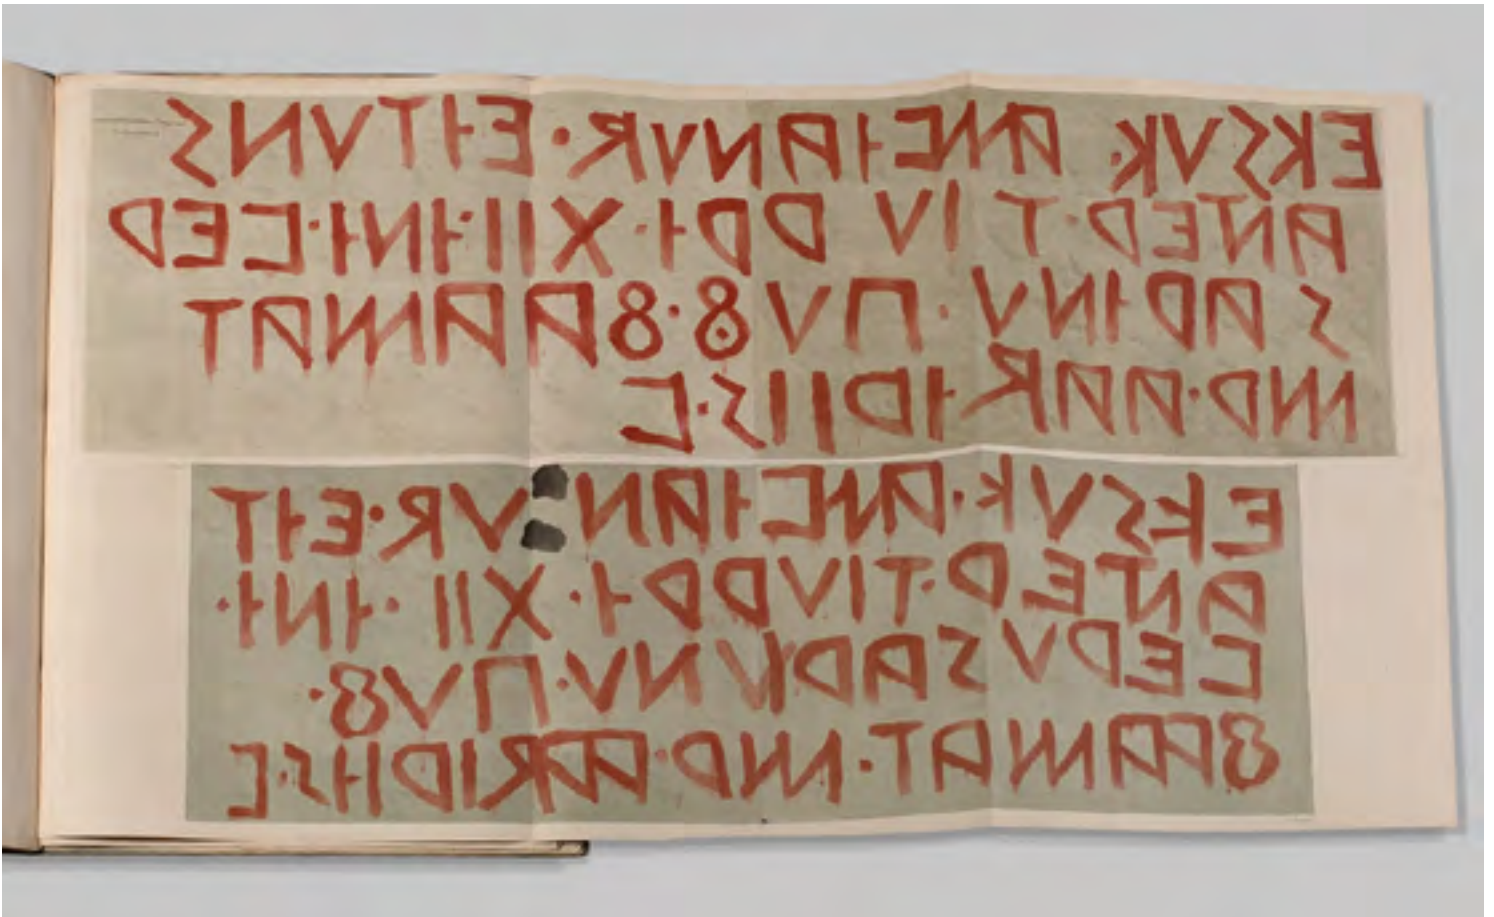 𐌄𐌊𐌔𐌖𐌊 · 𐌀𐌌𐌅𐌝𐌀𐌍𐌖𐌃 · 𐌄𐌝𐌕𐌖𐌍𐌔
𐌀𐌍𐌕𐌄𐌓 · 𐌕 𐌉𐌖 𐌓 𐌓𐌝 · XII · 𐌝𐌍𐌝 · 𐌅𐌄𐌓
𐌔 𐌀𐌓𐌝𐌍𐌖 · 𐌐𐌖 𐌚 · 𐌚𐌀𐌀𐌌𐌀𐌕
𐌌𐌓 · 𐌀𐌀𐌃𐌝𐌓𐌉𐌉𐌔 · 𐌅
𐌄𐌊𐌔𐌖𐌊 · 𐌀𐌌𐌅𐌝𐌀𐌍 𐌖𐌃 · 𐌄𐌝𐌕
𐌀𐌍𐌕𐌄𐌓 · 𐌕𐌉𐌖𐌓𐌓𐌝 · XII · 𐌝𐌍𐌝 ·
𐌅𐌄𐌓𐌖 𐌔𐌀𐌓𐌖𐌍𐌖 · 𐌐𐌖𐌚 ·
𐌚𐌀𐌀𐌌𐌀𐌕 · 𐌌𐌓 · 𐌀𐌀𐌃𐌉𐌓𐌉𐌝𐌔 · 𐌅